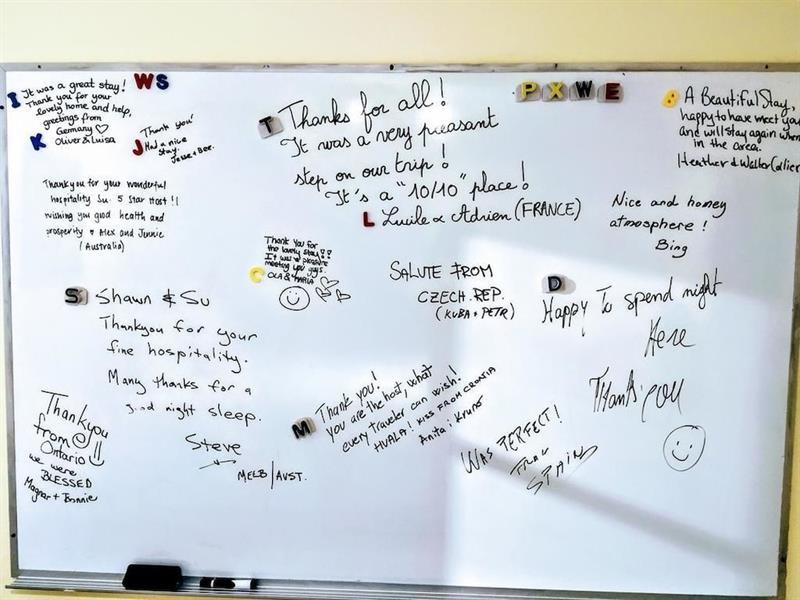 I
It was a great stay!
Thank you for your
lovely home and help,
greetings from
Germany ♡
Oliver & Luisa
K
WS
Thank you!
Had a nice
stay.
Jesse + Bee.
J
T
Thanks for all!
It was a very pleasant
step on our trip!
It's a "10/10" place!
L
Lucile & Adrien (FRANCE)
PXWE
8
A Beautiful Stay,
happy to have meet you
and will stay again when
in the area.
Heather & Walter Collier
Thankyou for your wonderful
hospitality Su. 5 Star Host!!
wishing you good health and
prosperity Alex and Jennie
(Australia)
Nice and homey
atmosphere!
Bing
Thank You for
the lovely stay!!
It was a pleasure
meeting you guys.
C
SALUTE FROM
CZECH. REP.
(KUBA + PETR)
S
Shawn & Su
Thankyou for your
fine hospitality.
Many thanks for a
good night sleep.
Steve
MELB/AUST.
D
Happy To spend night
Here
Thank you
Thankyou
from
Ontario
we were
BLESSED
Magnar + Bonnie
M
Thank you!
you are the host, what
every traveler can wish!
HVALA! KISS FROM CROATIA
Anita i Kruno
WAS PERFECT!
FROM
SPAIN